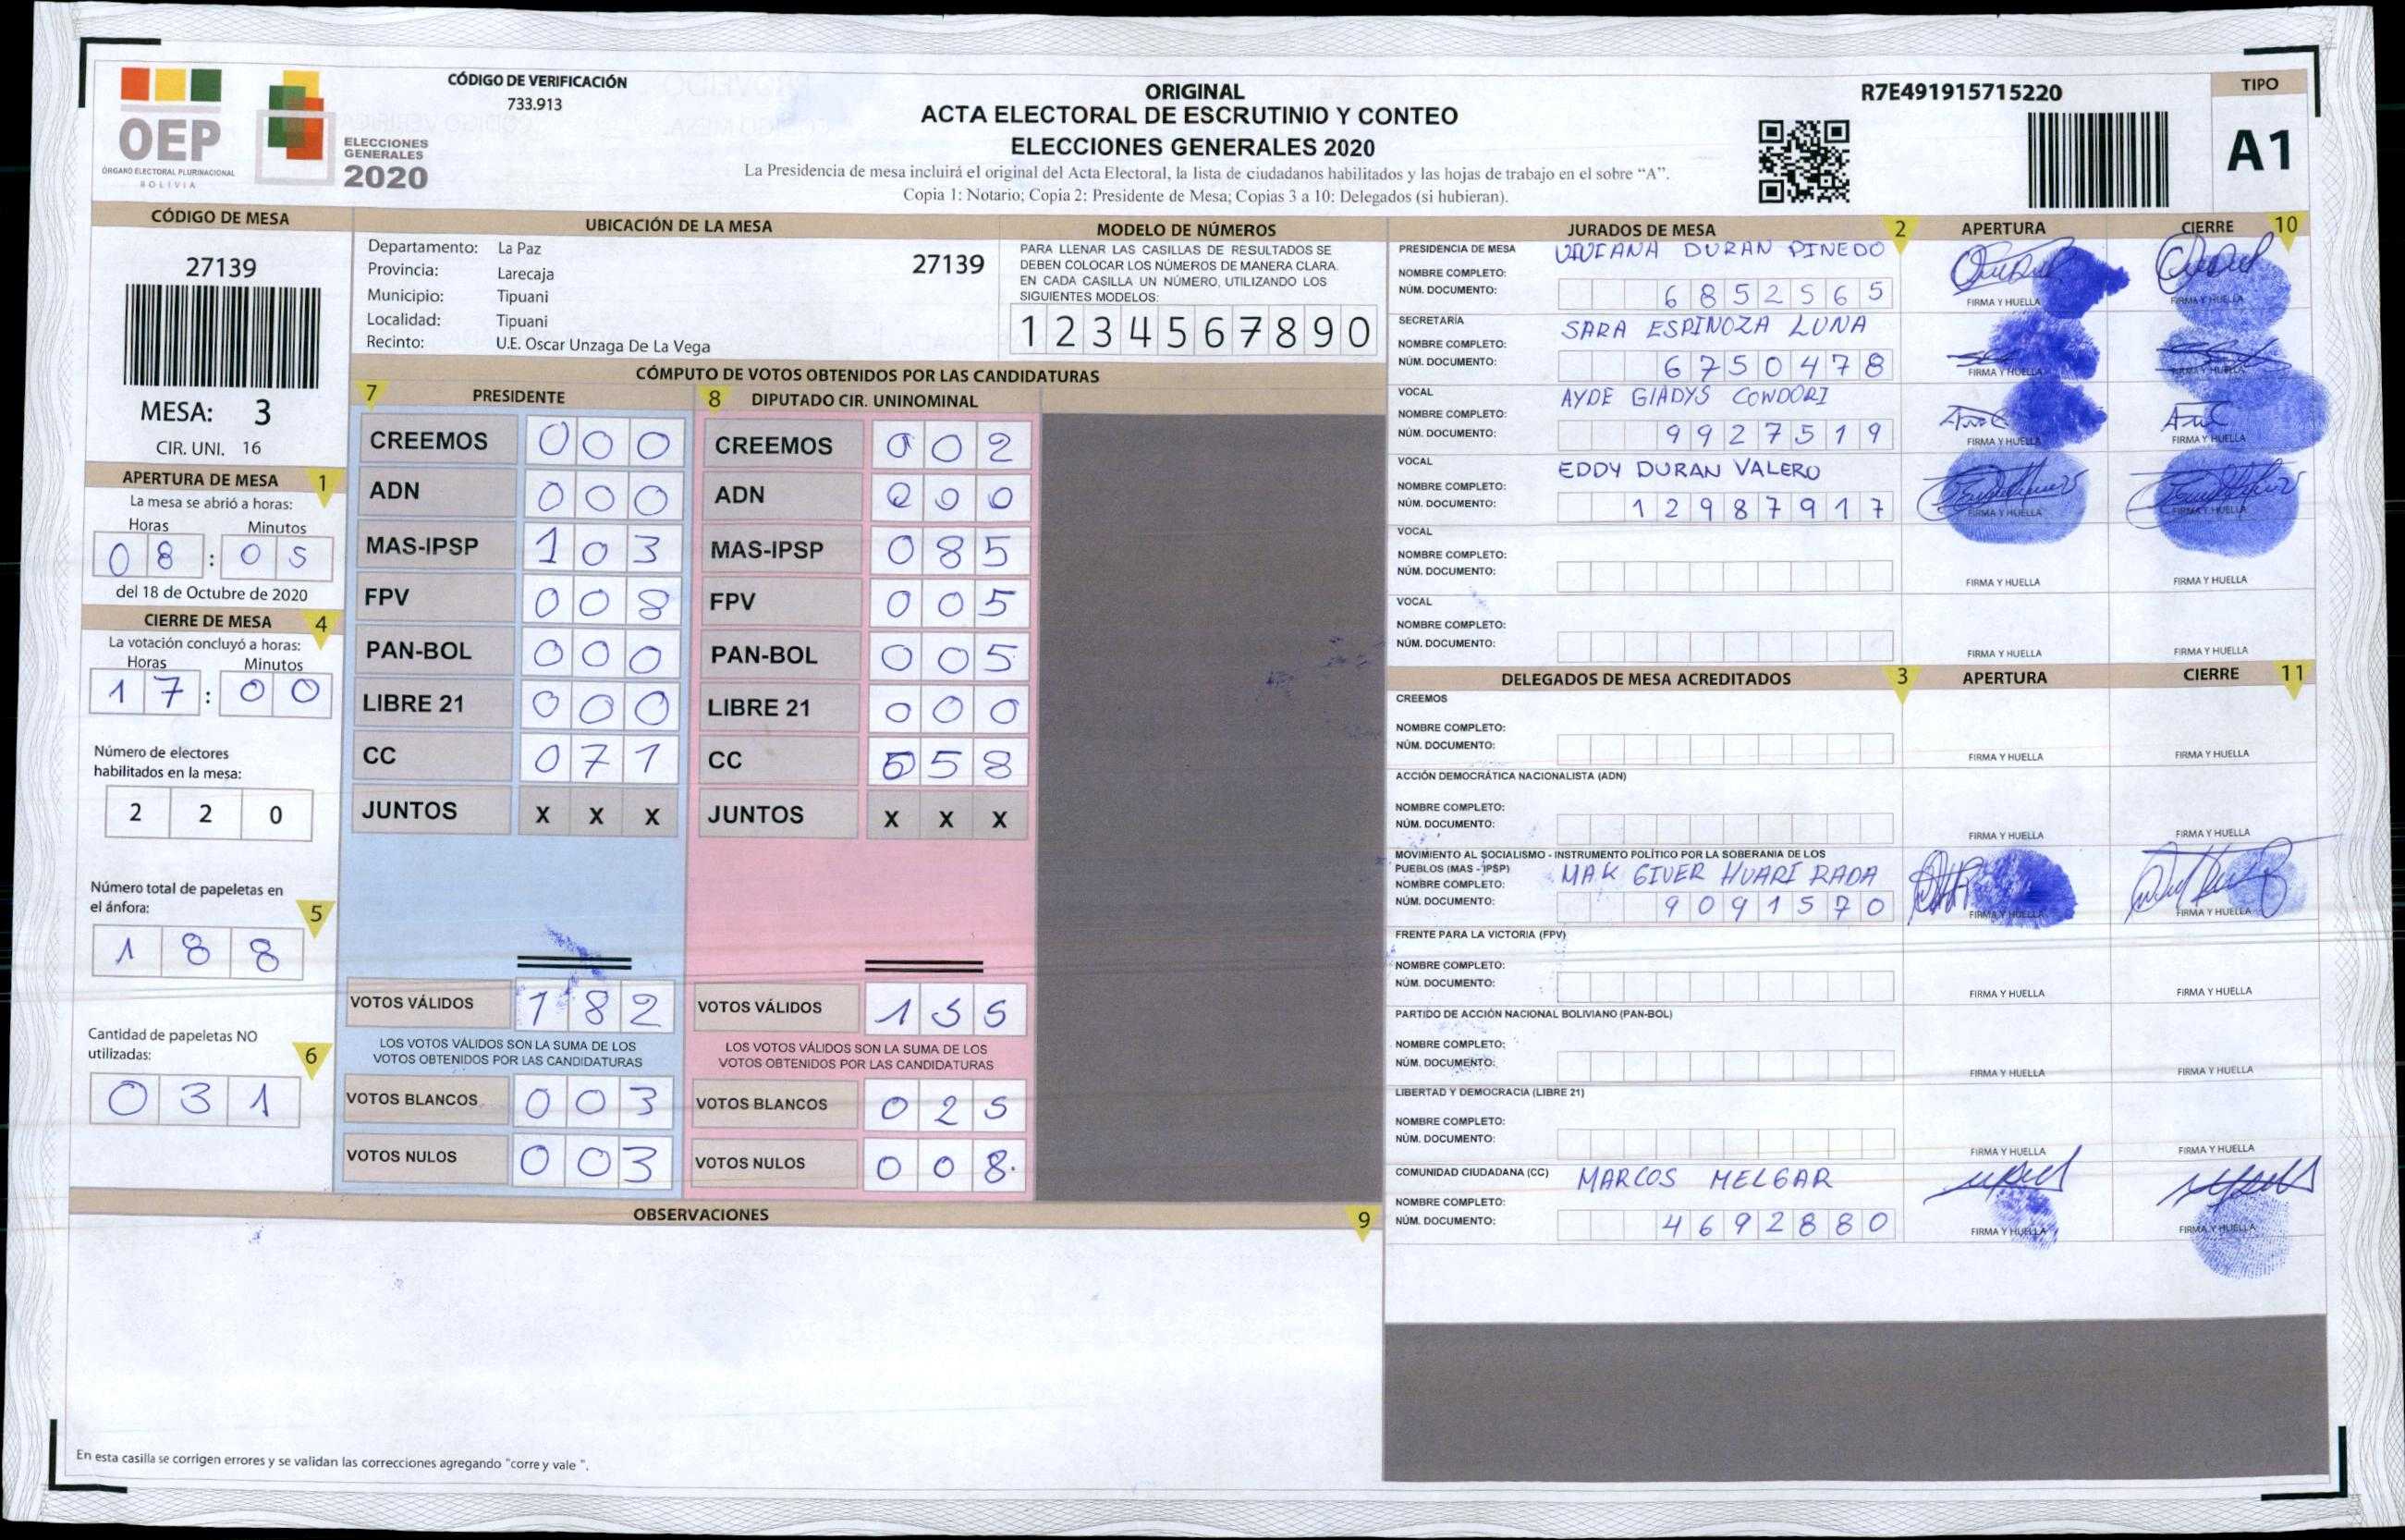 OEP
ÓRGANO ELECTORAL PLURINACIONAL
BOLIVIA
ELECCIONES
GENERALES
2020
CÓDIGO DE VERIFICACIÓN
733.913
ORIGINAL
ACTA ELECTORAL DE ESCRUTINIO Y CONTEO
ELECCIONES GENERALES 2020
La Presidencia de mesa incluirá el original del Acta Electoral, la lista de ciudadanos habilitados y las hojas de trabajo en el sobre “A”.
Copia 1: Notario; Copia 2: Presidente de Mesa; Copias 3 a 10: Delegados (si hubieran).
R7E491915715220
TIPO
A1
CÓDIGO DE MESA
27139
MESA: 3
CIR. UNI. 16
APERTURA DE MESA 1
La mesa se abrió a horas:
Horas Minutos
08 : 05
del 18 de Octubre de 2020
CIERRE DE MESA 4
La votación concluyó a horas:
Horas Minutos
17 : 00
Número de electores
habilitados en la mesa:
2 2 0
Número total de papeletas en
el ánfora: 5
1 8 8
Cantidad de papeletas NO
utilizadas: 6
0 3 1
UBICACIÓN DE LA MESA
Departamento: La Paz
Provincia: Larecaja
27139
Municipio: Tipuani
Localidad: Tipuani
Recinto: U.E. Oscar Unzaga De La Vega
MODELO DE NÚMEROS
PARA LLENAR LAS CASILLAS DE RESULTADOS SE
DEBEN COLOCAR LOS NÚMEROS DE MANERA CLARA.
EN CADA CASILLA UN NÚMERO, UTILIZANDO LOS
SIGUIENTES MODELOS:
1 2 3 4 5 6 7 8 9 0
CÓMPUTO DE VOTOS OBTENIDOS POR LAS CANDIDATURAS
7 PRESIDENTE
CREEMOS 0 0 0
ADN 0 0 0
MAS-IPSP 1 0 3
FPV 0 0 8
PAN-BOL 0 0 0
LIBRE 21 0 0 0
CC 0 7 1
JUNTOS X X X
VOTOS VÁLIDOS 1 8 2
LOS VOTOS VÁLIDOS SON LA SUMA DE LOS
VOTOS OBTENIDOS POR LAS CANDIDATURAS
VOTOS BLANCOS 0 0 3
VOTOS NULOS 0 0 3
8 DIPUTADO CIR. UNINOMINAL
CREEMOS 0 0 2
ADN 0 0 0
MAS-IPSP 0 8 5
FPV 0 0 5
PAN-BOL 0 0 5
LIBRE 21 0 0 0
CC 5 8
JUNTOS X X X
VOTOS VÁLIDOS 1 5 5
LOS VOTOS VÁLIDOS SON LA SUMA DE LOS
VOTOS OBTENIDOS POR LAS CANDIDATURAS
VOTOS BLANCOS 0 2 5
VOTOS NULOS 0 0 8
OBSERVACIONES 9
En esta casilla se corrigen errores y se validan las correcciones agregando "corre y vale ".
JURADOS DE MESA 2 APERTURA CIERRE 10
PRESIDENCIA DE MESA
NOMBRE COMPLETO: VIVIANA DURAN PINEDO
NÚM. DOCUMENTO: 6852565
FIRMA Y HUELLA FIRMA Y HUELLA
SECRETARÍA
NOMBRE COMPLETO: SARA ESPINOZA LUNA
NÚM. DOCUMENTO: 6750478
FIRMA Y HUELLA FIRMA Y HUELLA
VOCAL
NOMBRE COMPLETO: AYDE GLADYS CONDORI
NÚM. DOCUMENTO: 9927519
FIRMA Y HUELLA FIRMA Y HUELLA
VOCAL
NOMBRE COMPLETO: EDDY DURAN VALERO
NÚM. DOCUMENTO: 12987917
FIRMA Y HUELLA FIRMA Y HUELLA
VOCAL
NOMBRE COMPLETO:
NÚM. DOCUMENTO:
FIRMA Y HUELLA FIRMA Y HUELLA
VOCAL
NOMBRE COMPLETO:
NÚM. DOCUMENTO:
FIRMA Y HUELLA FIRMA Y HUELLA
DELEGADOS DE MESA ACREDITADOS 3 APERTURA CIERRE 11
CREEMOS
NOMBRE COMPLETO:
NÚM. DOCUMENTO:
FIRMA Y HUELLA FIRMA Y HUELLA
ACCIÓN DEMOCRÁTICA NACIONALISTA (ADN)
NOMBRE COMPLETO:
NÚM. DOCUMENTO:
FIRMA Y HUELLA FIRMA Y HUELLA
MOVIMIENTO AL SOCIALISMO - INSTRUMENTO POLÍTICO POR LA SOBERANIA DE LOS
PUEBLOS (MAS - IPSP)
NOMBRE COMPLETO: MAK GIVER HUARI RADA
NÚM. DOCUMENTO: 9091570
FIRMA Y HUELLA FIRMA Y HUELLA
FRENTE PARA LA VICTORIA (FPV)
NOMBRE COMPLETO:
NÚM. DOCUMENTO:
FIRMA Y HUELLA FIRMA Y HUELLA
PARTIDO DE ACCIÓN NACIONAL BOLIVIANO (PAN-BOL)
NOMBRE COMPLETO:
NÚM. DOCUMENTO:
FIRMA Y HUELLA FIRMA Y HUELLA
LIBERTAD Y DEMOCRACIA (LIBRE 21)
NOMBRE COMPLETO:
NÚM. DOCUMENTO:
FIRMA Y HUELLA FIRMA Y HUELLA
COMUNIDAD CIUDADANA (CC) MARCOS MELGAR
NOMBRE COMPLETO:
NÚM. DOCUMENTO: 4692880
FIRMA Y HUELLA FIRMA Y HUELLA